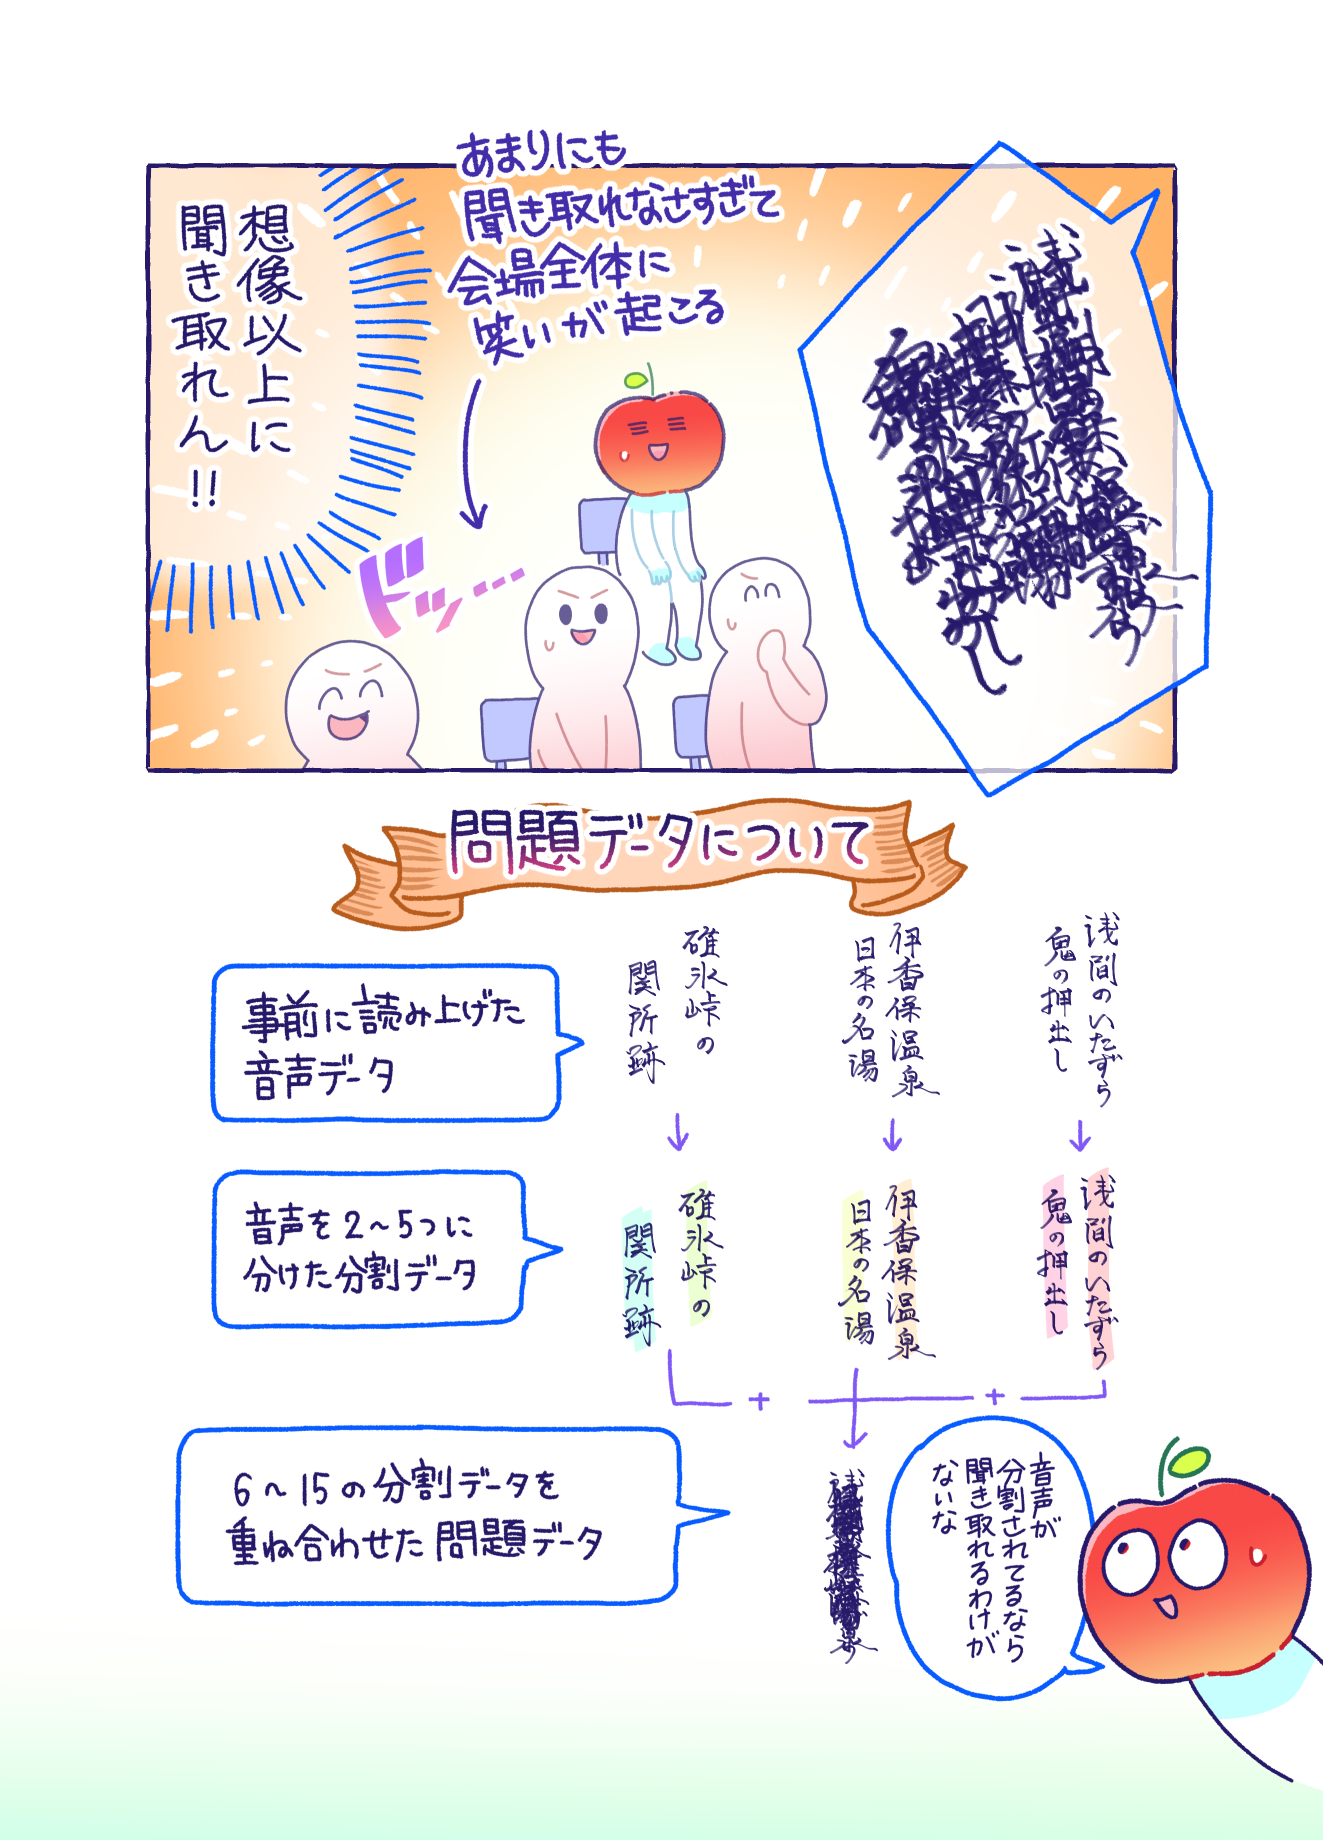 想像以上に
聞き取れん!!
あまりにも
聞き取れなさすぎて
会場全体に
笑いが起こる
ドッ---
問題データについて
事前に読み上げた
音声データ
浅間のいたずら
鬼の押出し
伊香保温泉
日本の名湯
碓氷峠の
関所跡
音声を2〜5つに
分けた分割データ
浅間のいたずら
鬼の押出し
伊香保温泉
日本の名湯
碓氷峠の
関所跡
+
+
6〜15の分割データを
重ね合わせた問題データ
音声が
分割されてるなら
聞き取れるわけが
ないな